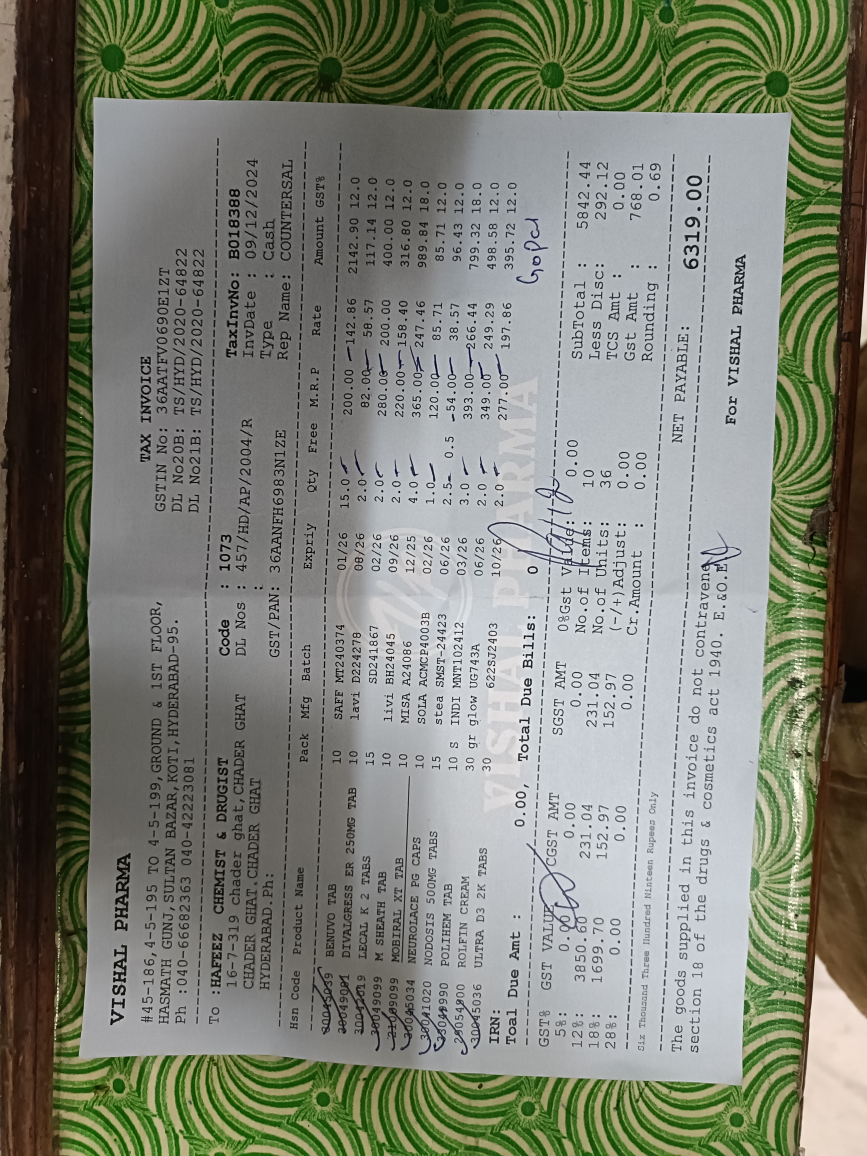 VISHAL PHARMA
#45-186,4-5-195 TO 4-5-199,GROUND & 1ST FLOOR,
HASMATH GUNJ,SULTAN BAZAR,KOTI,HYDERABAD-95.
Ph :040-66682363 040-42223081
TAX INVOICE
GSTIN No: 36AATFV0690E1ZT
DL No20B: TS/HYD/2020-64822
DL No21B: TS/HYD/2020-64822
To :HAFEEZ CHEMIST & DRUGIST
16-7-319 chader ghat,CHADER GHAT
CHADER GHAT.CHADER GHAT
HYDERABAD.Ph:
Code : 1073
DL Nos : 457/HD/AP/2004/R
:
GST/PAN: 36AANFH6983N1ZE
TaxInvNo: B018388
InvDate : 09/12/2024
Type : Cash
Rep Name: COUNTERSAL
Hsn Code Product Name Pack Mfg Batch Expriy Qty Free M.R.P Rate Amount GST%
30045039 BENUVO TAB 10 SAFF MT240374 01/26 15.0 200.00 142.86 2142.90 12.0
30049081 DIVALGRESS ER 250MG TAB 10 lavi D224278 08/26 2.0 82.00 58.57 117.14 12.0
LECAL K 2 TABS 15 SD241867 02/26 2.0 280.00 200.00 400.00 12.0
30049099 M SHEATH TAB 10 livi BH24045 09/26 2.0 220.00 158.40 316.80 12.0
21069099 MOBIRAL XT TAB 10 MISA A24086 12/25 4.0 365.00 247.46 989.84 18.0
30045034 NEUROLACE PG CAPS 10 SOLA ACMCP4003B 02/26 1.0 120.00 85.71 85.71 12.0
30041020 NODOSIS 500MG TABS 15 stea SMST-24423 06/26 2.5 0.5 54.00 38.57 96.43 12.0
POLIHEM TAB 10 S INDI MNT102412 03/26 3.0 393.00 266.44 799.32 18.0
ROLFIN CREAM 30 gr glow UG743A 06/26 2.0 349.00 249.29 498.58 12.0
30045036 ULTRA D3 2K TABS 30 622SJ2403 10/26 2.0 277.00 197.86 395.72 12.0
IRN:
Toal Due Amt : 0.00, Total Due Bills: 0
Gopal
GST% GST VALUE CGST AMT SGST AMT 0%Gst Value: 0.00 SubTotal : 5842.44
5%: 0.00 0.00 0.00 No.of Items: 10 Less Disc: 292.12
12%: 3850.60 231.04 231.04 No.of Units: 36 TCS Amt : 0.00
18%: 1699.70 152.97 152.97 (-/+)Adjust: 0.00 Gst Amt : 768.01
28%: 0.00 0.00 0.00 Cr.Amount : 0.00 Rounding : 0.69
Six Thousand Three Hundred Ninteen Rupees Only
NET PAYABLE: 6319.00
The goods supplied in this invoice do not contravene
section 18 of the drugs & cosmetics act 1940. E.&O.E
For VISHAL PHARMA
VISHAL PHARMA